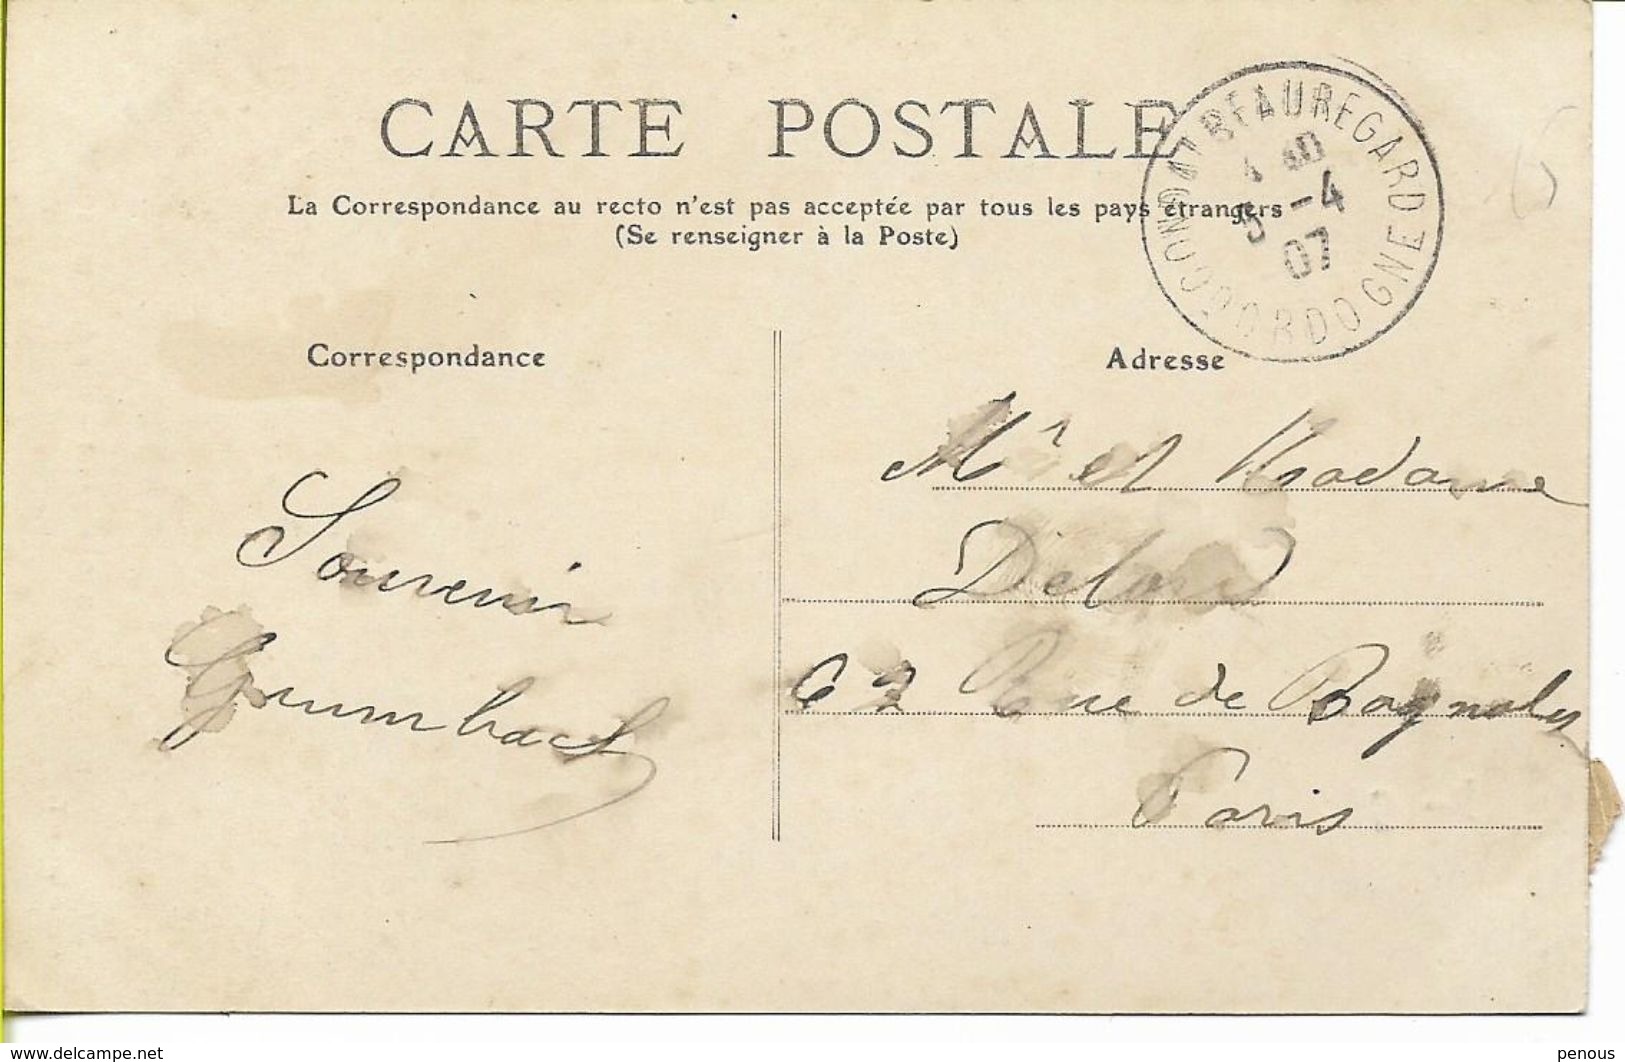 CARTE POSTALE
La Correspondance au recto n'est pas acceptée par tous les pays étrangers
(Se renseigner à la Poste)
CONDAT BEAUREGARD
4 30
5 -4
07
DORDOGNE
Correspondance
Adresse
Souvenir
Grumbach
Mr et Madame
Delord
62 Rue de Bagnolet
Paris
www.delcampe.net
penous